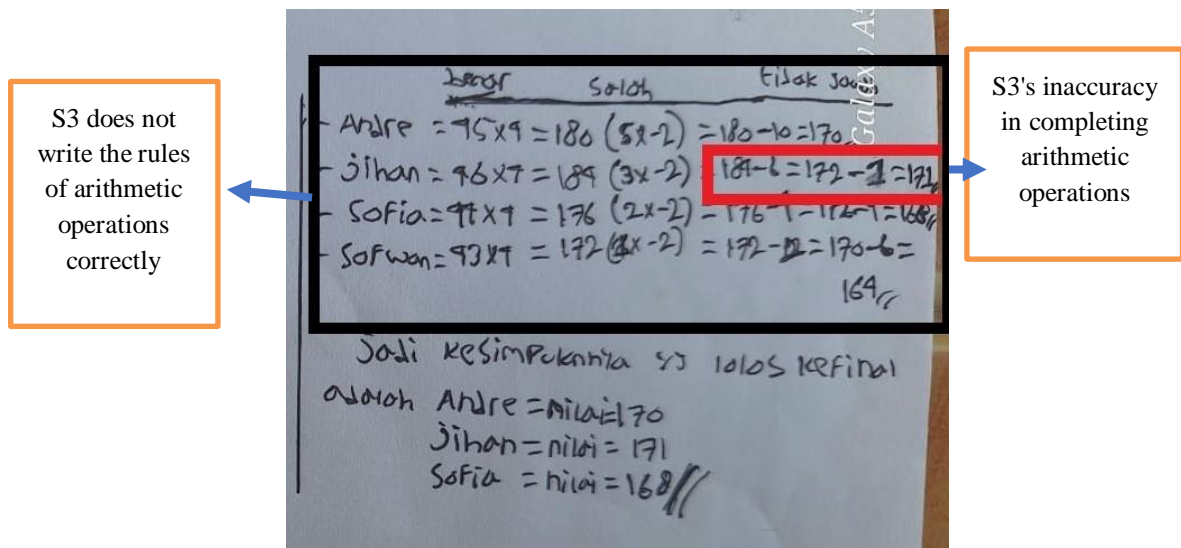 S3 does not
write the rules
of arithmetic
operations
correctly
Galaxy A5
benar Salah tidak
- Andre = 45x4 = 180 (5x-2) = 180-10=170
- Jihan = 46x4 = 184 (3x-2) = 184-6=172-1=171
- Sofia = 44x4 = 176 (2x-2) = 176-
- Sofwan = 43x4 = 172 ( x-2) = 172- =170-6=
164
Jadi kesimpulannya yg lolos kefinal
adalah Andre = nilai=170
Jihan = nilai = 171
Sofia = nilai = 168
S3's inaccuracy
in completing
arithmetic
operations